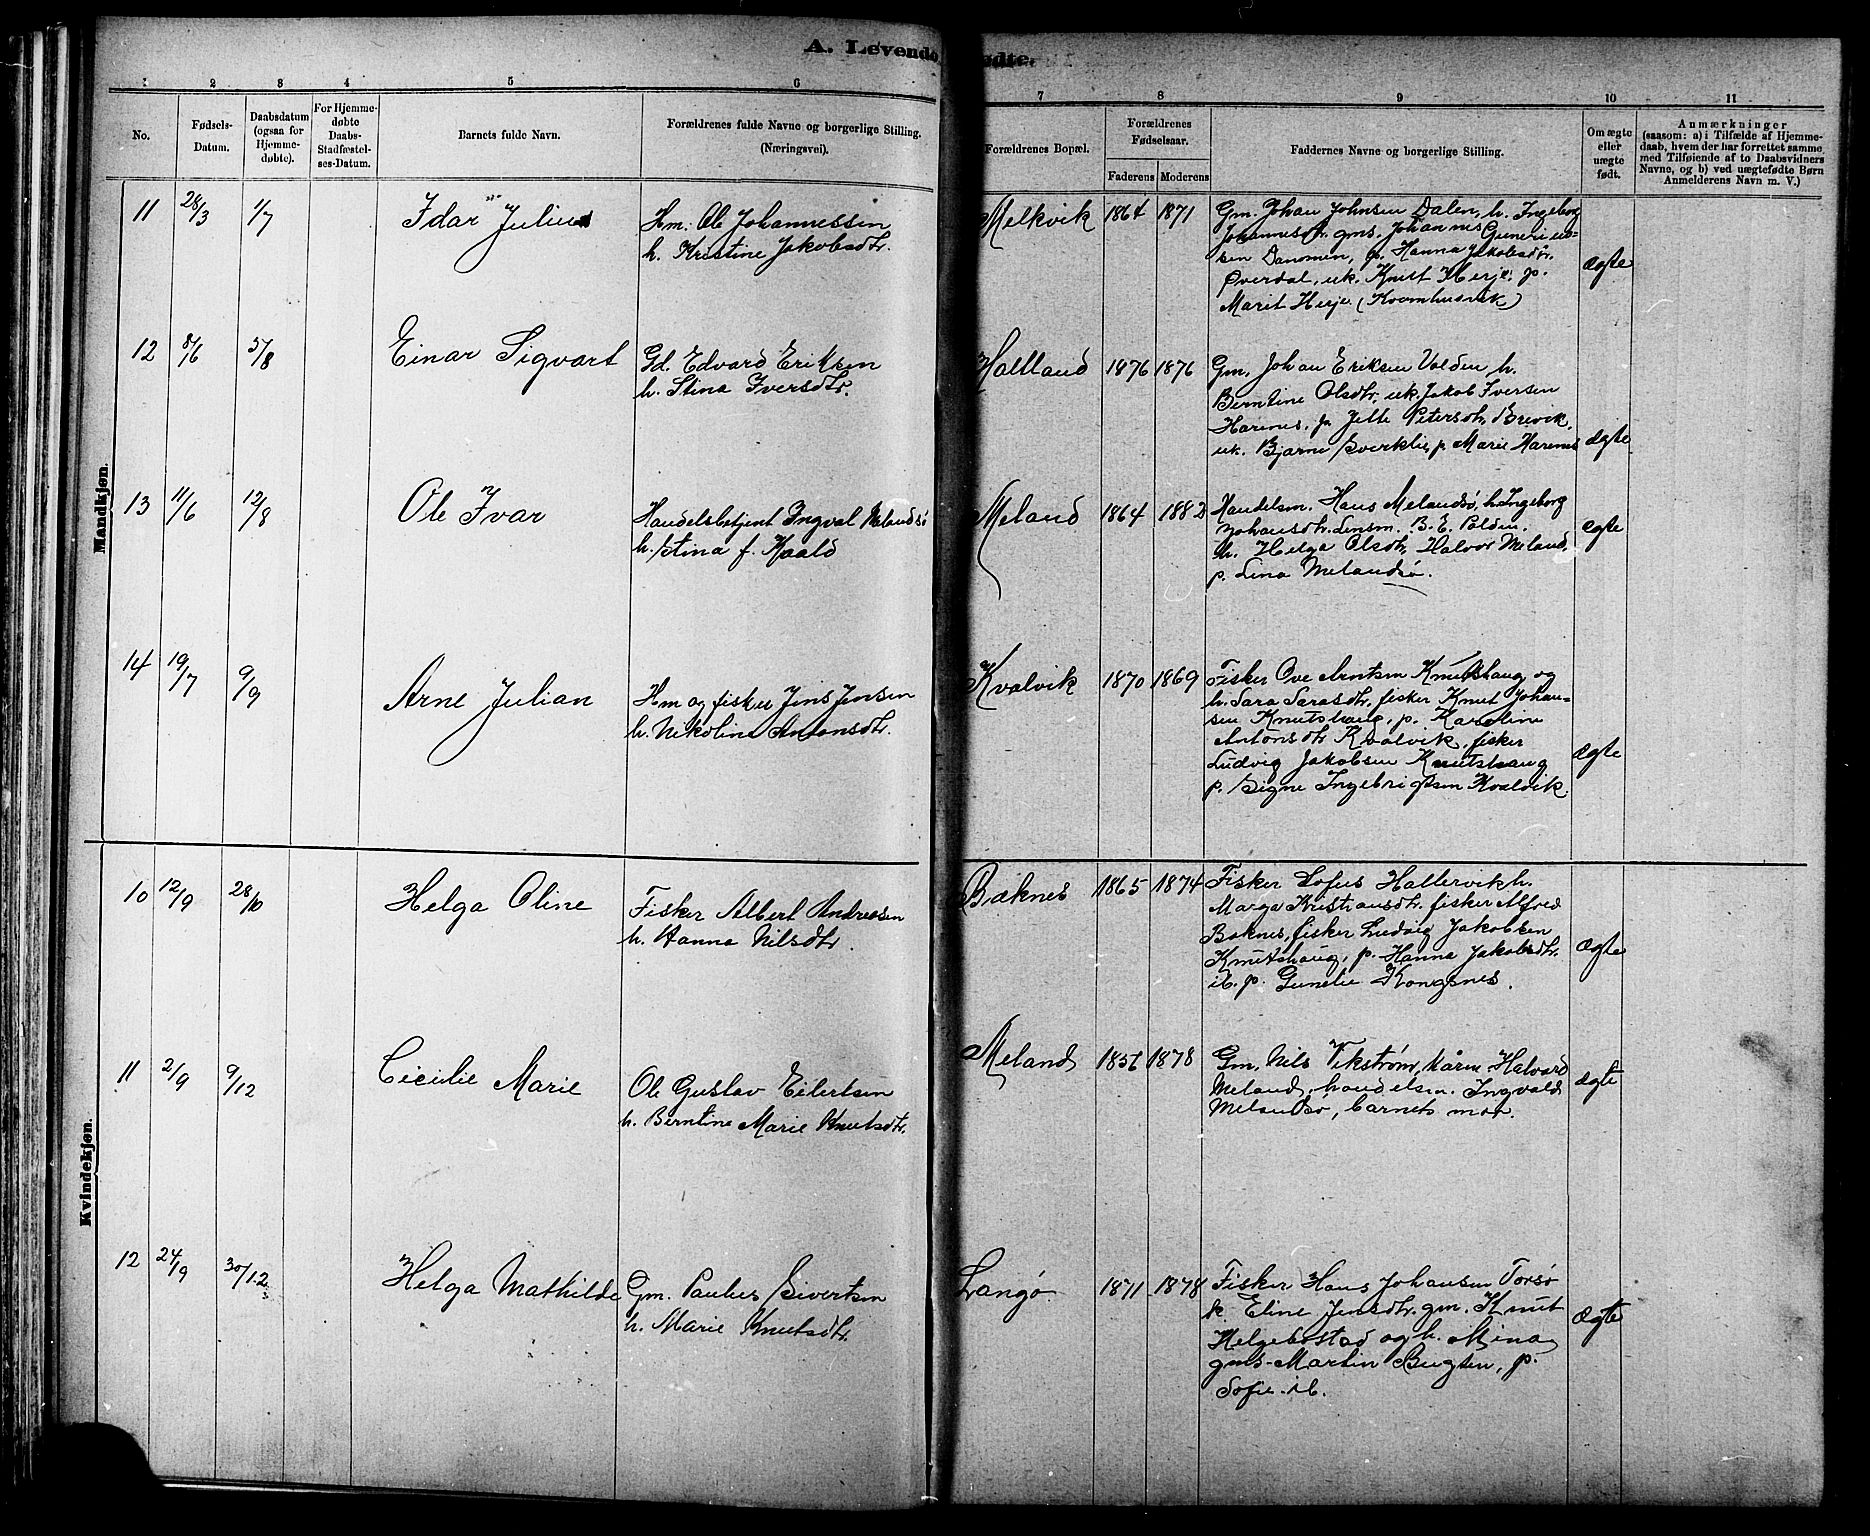 A. Levende
ødte.
1 2 3 4 5 6 7 8 9 10 11
No.
Fødsels-
Datum.
Daabsdatum
(ogsaa for
Hjemme-
døbte).
For Hjemme-
døbte
Daabs-
Stadfæstel-
ses-Datum.
Barnets fulde Navn.
Forældrenes fulde Navne og borgerlige Stilling.
(Næringsvei).
Forældrenes Bopæl.
Forældrenes
Fødselsaar.
Faderens Moderens
Faddernes Navne og borgerlige Stilling.
Om ægte
eller
uægte
født.
Anmærkninger
(saasom: a) i Tilfælde af Hjemme-
daab, hvem der har forrettet samme,
med Tilføiende af to Daabsvidners
Navne, og b) ved uægtefødte Børn
Anmelderens Navn m. V.)
Mandkjøn.
11 28/3 1/7 Idar Julius
Hm. Ole Johannessen
h. Kristine Jakobsdtr.
Melkvik 1864 1871
Gm. Johan Johnsen Dalen, h. Ingeborg
Johannesdtr. gms. Johannes Gunerius-
sen, p. Hanna Jakobsdtr.
Øverdal, uk. Knut Herje, p.
Marit Herje (Kvernhusvik)
ægte
12 8/6 5/8 Einar Sigvart
Gd. Edvard Eriksen
h. Stina Iversdtr.
Haltland 1876 1876
Gm. Johan Eriksen Valden h.
Berntine Olsdtr, uk. Jakob Iversen
Harenes, p. Jette Petersdtr Brevik,
uk. Bjarne Sverklie, p. Marie Harenes
ægte
13 11/6 12/8 Ole Ivar
Handelsbetjent Ingval Melandsø
h. Stina f. Kaald
Meland 1864 1882
Handelsm. Hans Melandsø, h. Ingeborg
Johansdtr. Lensm. B. E. Polden.
h. Helga Olsdtr, Halvor Meland,
p. Lina Melandsø.
ægte
14 19/7 9/9 Arne Julian
Hm og fisker Jens Jensen
h. Nikoline Antonsdtr.
Kvalvik 1870 1869
Fisker Ove Arntsen Knutshaug og
h. Sara Larsdtr. fisker Knut Johan-
sen Knutshaug, p. Karoline
Antonsdtr Kvalvik, fisker
Ludvig Jakobsen Knutshaug
p. Signe Ingebrigtsen Kvalvik.
ægte
Kvindekjøn.
10 12/9 28/10 Helga Oline
Fisker Albert Andreasen
h. Hanna Nilsdtr.
Bæknes 1865 1874
Fisker Lofus Hallervik h.
Marga Kristiansdtr. fisker Alfred
Boknes, fisker Ludvig Jakobsen
Knutshaug, p. Hanna Jakobsdtr.
ib. p. Kongsnes.
ægte
11 2/9 9/12 Cecilie Marie
Ole Gustav Eilertsen
h. Berntine Marie Knutsdtr.
Meland 1856 1878
Gm. Nils Vikstrøm, Halvard
Meland, handelsm. Ingvald
Melandsø, barnets mor.
ægte
12 24/9 30/12 Helga Mathilde
Gm. Paulus Sivertsen
h. Marie Knutsdtr.
Langø 1871 1878
Fisker Hans Johansen Torsø
h. Eline Jensdtr. gm. Knut
Helgebostad og h. Mina
gms. Martin Bugten, p.
Sofie ib.
ægte